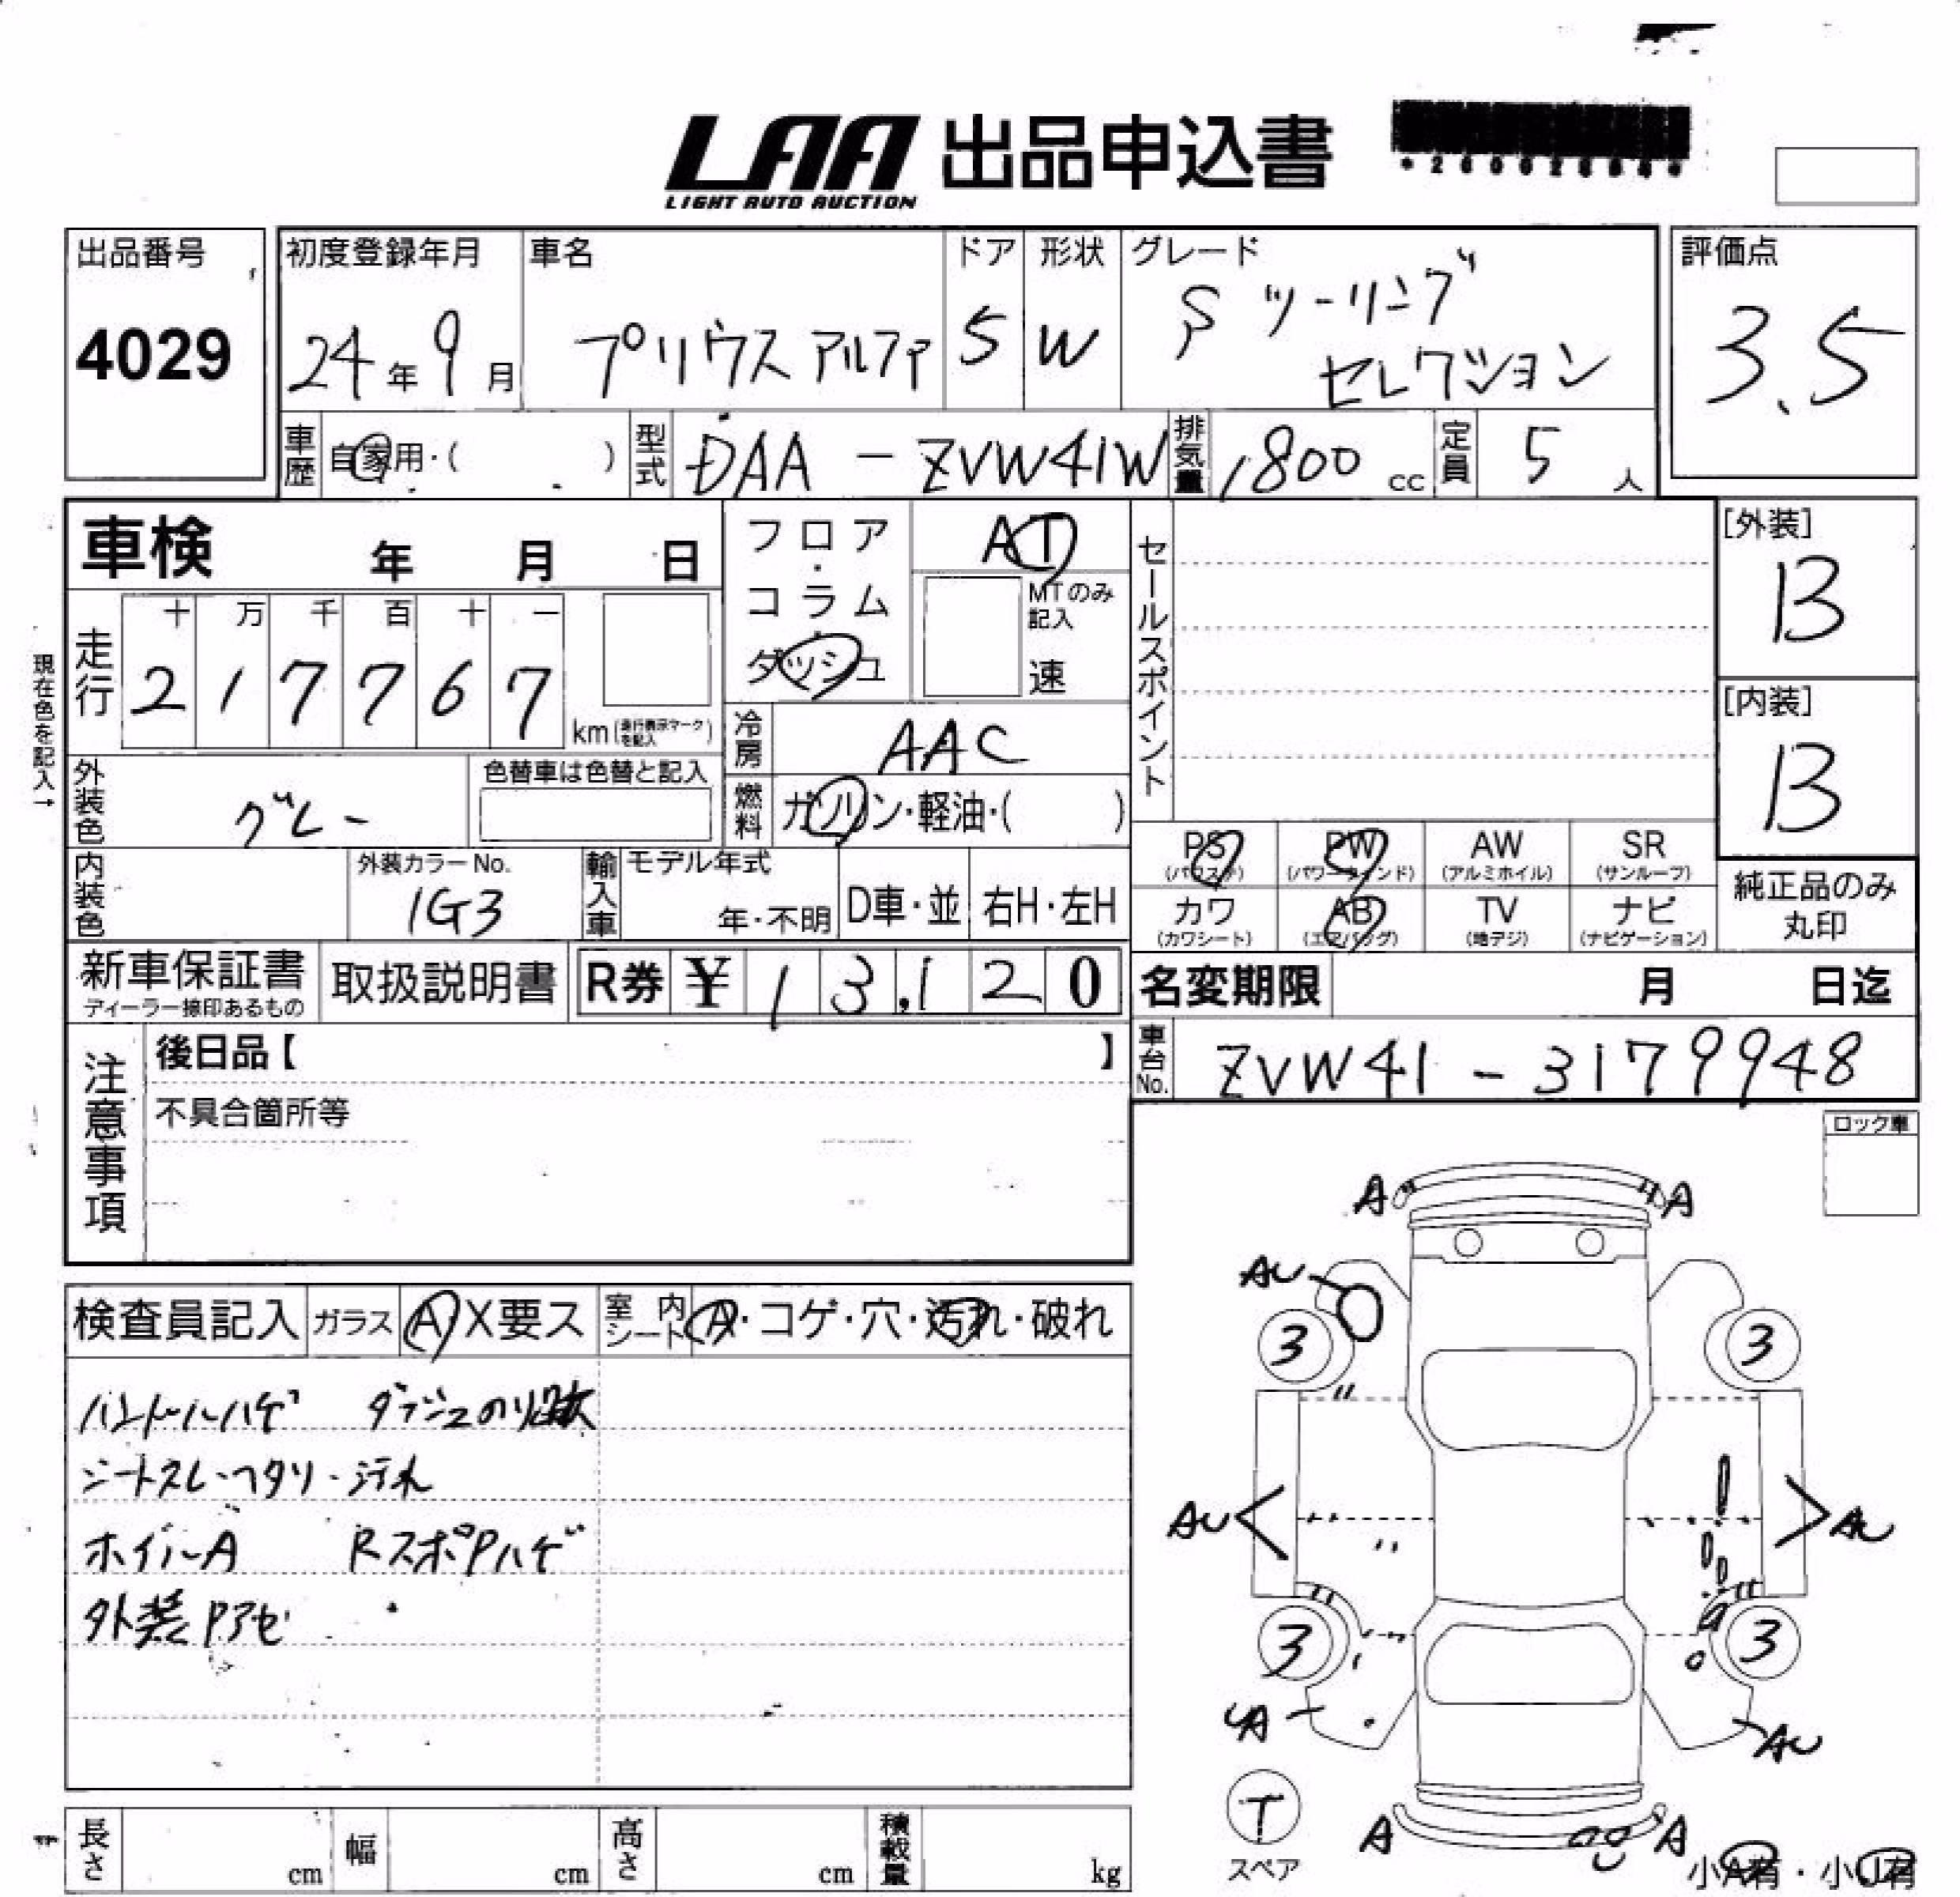 LAA 出品申込書
LIGHT AUTO AUCTION
出品番号
4029
初度登録年月
24年9月
車名
プリウスアルファ
ドア
5
形状
W
グレード
Sツーリング
セレクション
評価点
3.5
車歴
自家用・( )
型式
DAA-ZVW41W
排気量
1800cc
定員
5人
車検 年 月 日
走行
十 万 千 百 十 一
2 1 7 7 6 7
km (走行表示マークを記入)
現在色を記入→
フロア・コラム・ダッシュ
AT
MTのみ記入
速
冷房
AAC
燃料
ガソリン・軽油・( )
外装色
グレー
色替車は色替と記入
内装色
外装カラーNo.
1G3
輸入車
モデル年式
年・不明
D車・並
右H・左H
セールスポイント
[外装]
B
[内装]
B
PS (パワステ)
PW (パワーウィンド)
AW (アルミホイル)
SR (サンルーフ)
カワ (カワシート)
AB (エアバッグ)
TV (地デジ)
ナビ (ナビゲーション)
純正品のみ
丸印
新車保証書
ディーラー捺印あるもの
取扱説明書
R券 ¥ 13,120
名変期限 月 日迄
車台No.
ZVW41-3179948
注意事項
後日品【 】
不具合箇所等
ロック車
検査員記入
ガラス
A X要ス
室内シート
A・コゲ・穴・汚れ・破れ
ハンドルハゲ ダッシュのり跡大
シートスレ・ヘタリ・汚れ
ホイルA RスポPハゲ
外装Pアセ
A A
AU
3 3
AU AU
3 3
UA AU
T
スペア
A A
小A有・小U有
長さ cm
幅 cm
高さ cm
積載量 kg